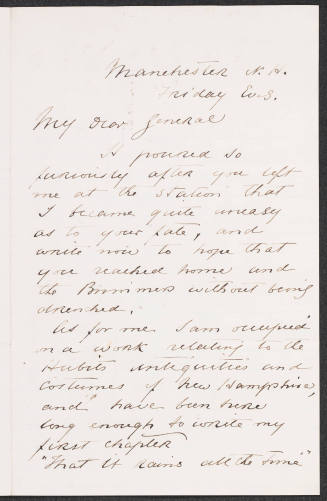 Manchester N. H.
Friday Evg.
My Dear General
It poured so
furiously after you left
me at the station that
I became quite uneasy
as to your fate, and
write now to hope that
you reached home and
the without being
drenched.
As for me I am occupied
on a work relating to the
Habits Antiquities and
Costumes of New Hampshire,
and have been here
long enough to write my
first chapter
"That it rains all the time"